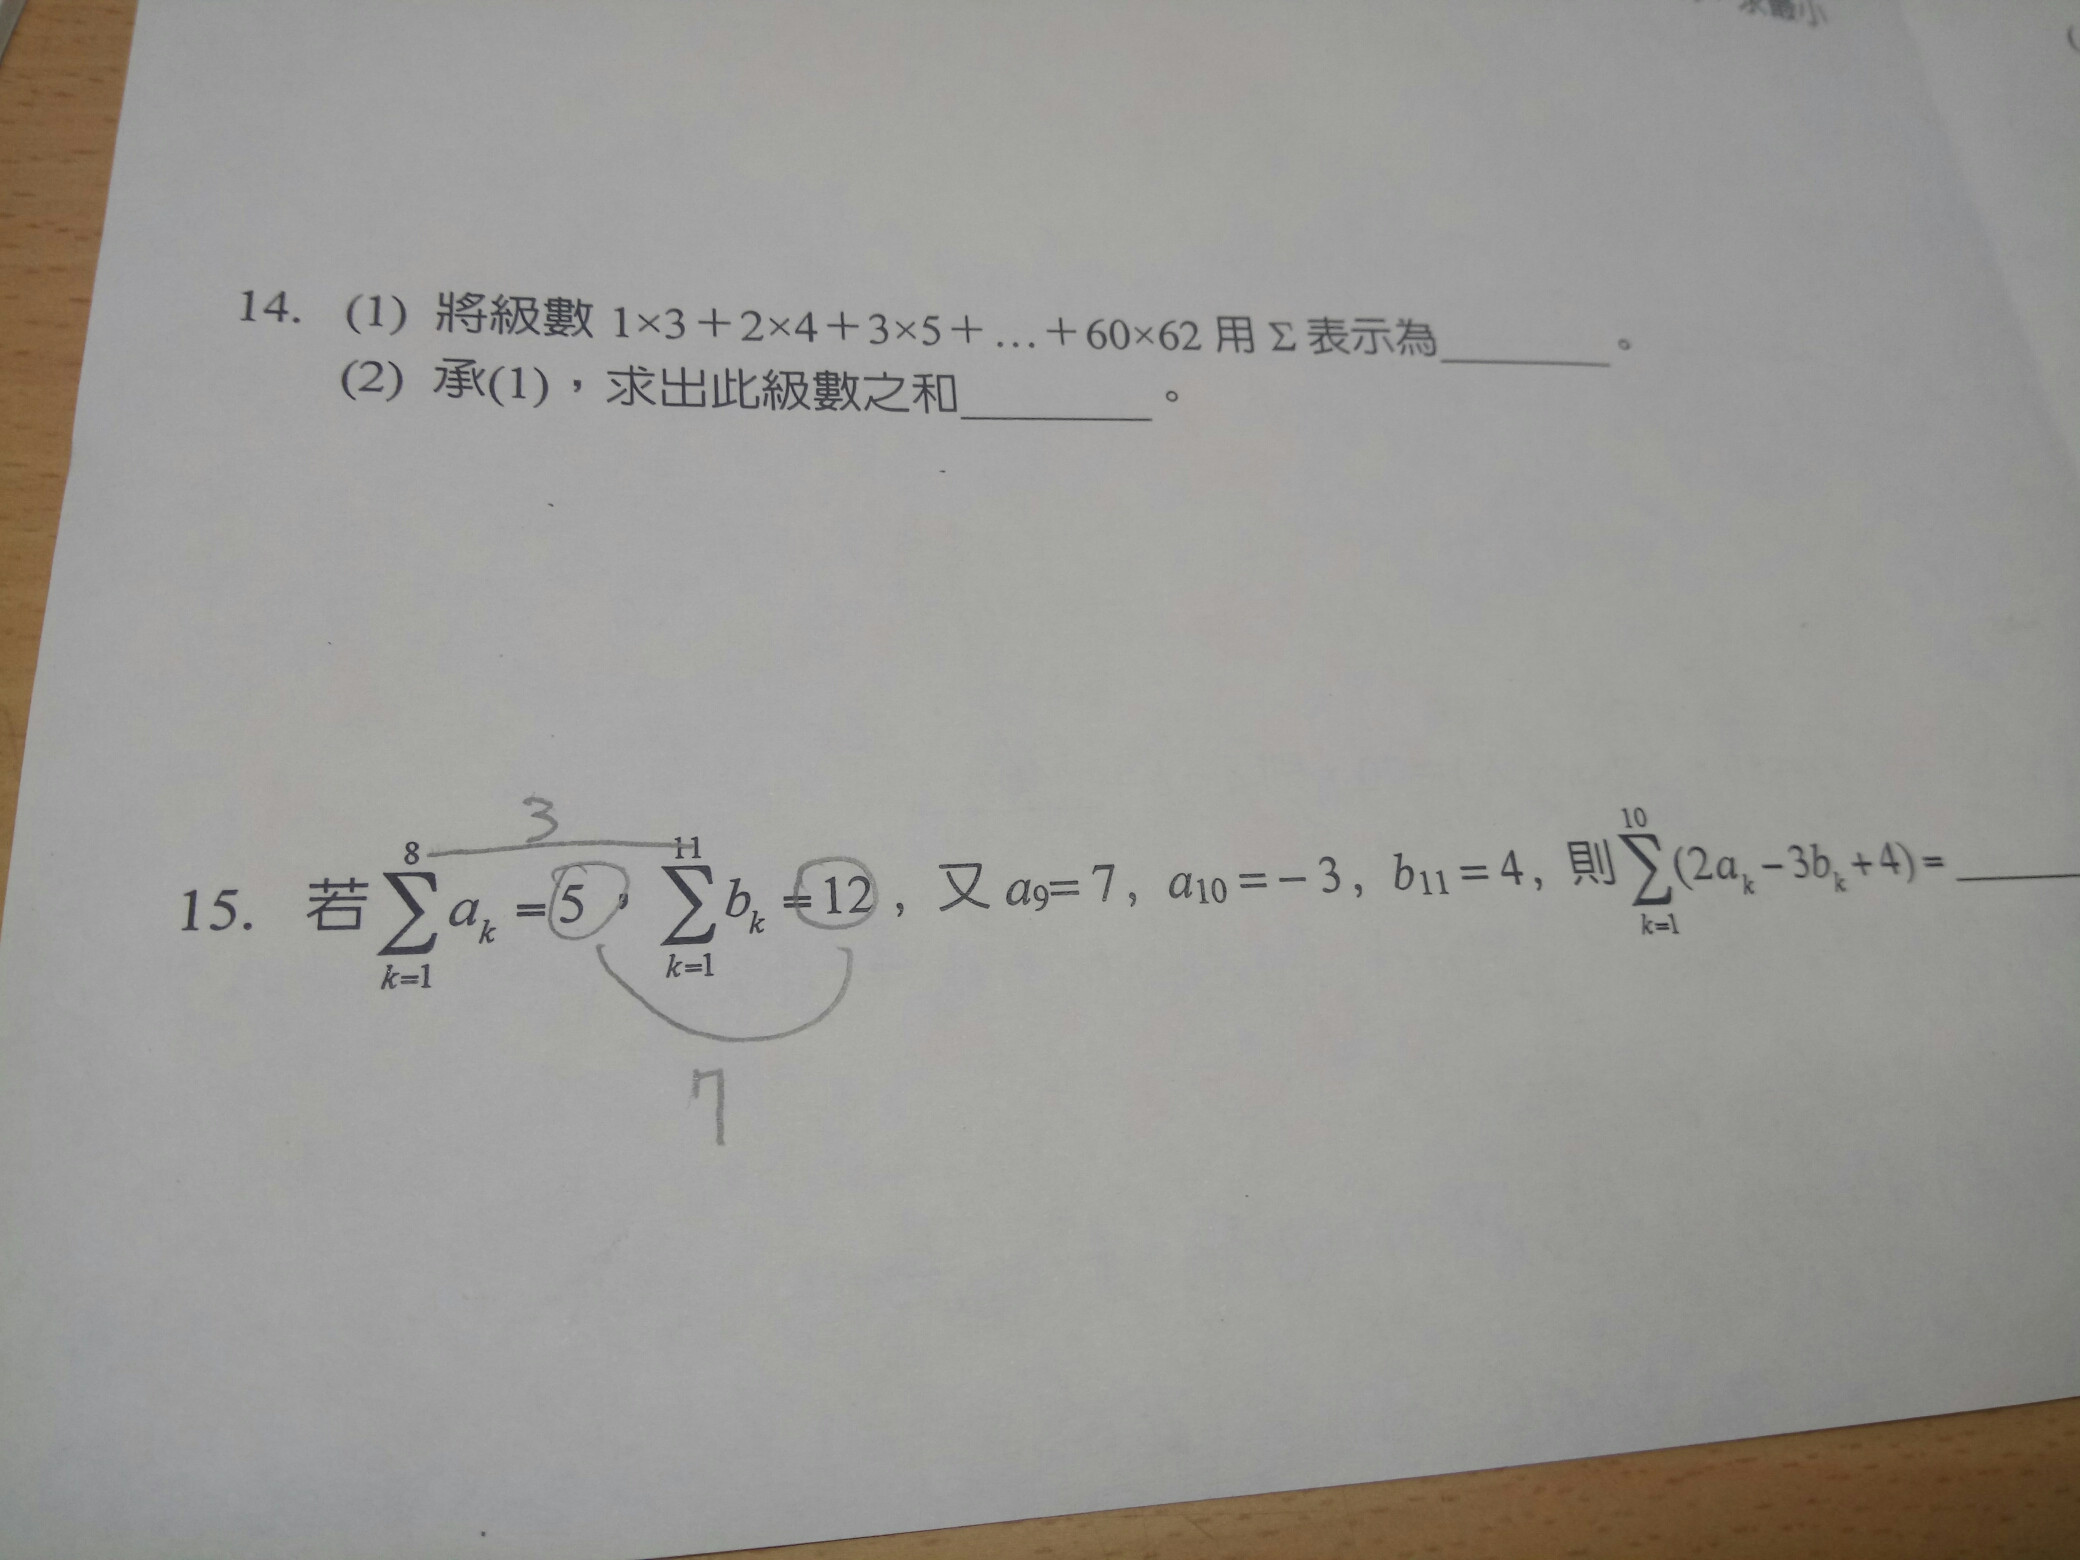 求最小
14. (1) 將級數 1×3+2×4+3×5+…+60×62 用 Σ 表示為________。
(2) 承(1),求出此級數之和________。
3
15. 若 \sum_{k=1}^{8} a_k = 5, \sum_{k=1}^{11} b_k = 12, 又 a_9 = 7, a_{10} = -3, b_{11} = 4, 則 \sum_{k=1}^{10} (2a_k - 3b_k + 4) = ______
7